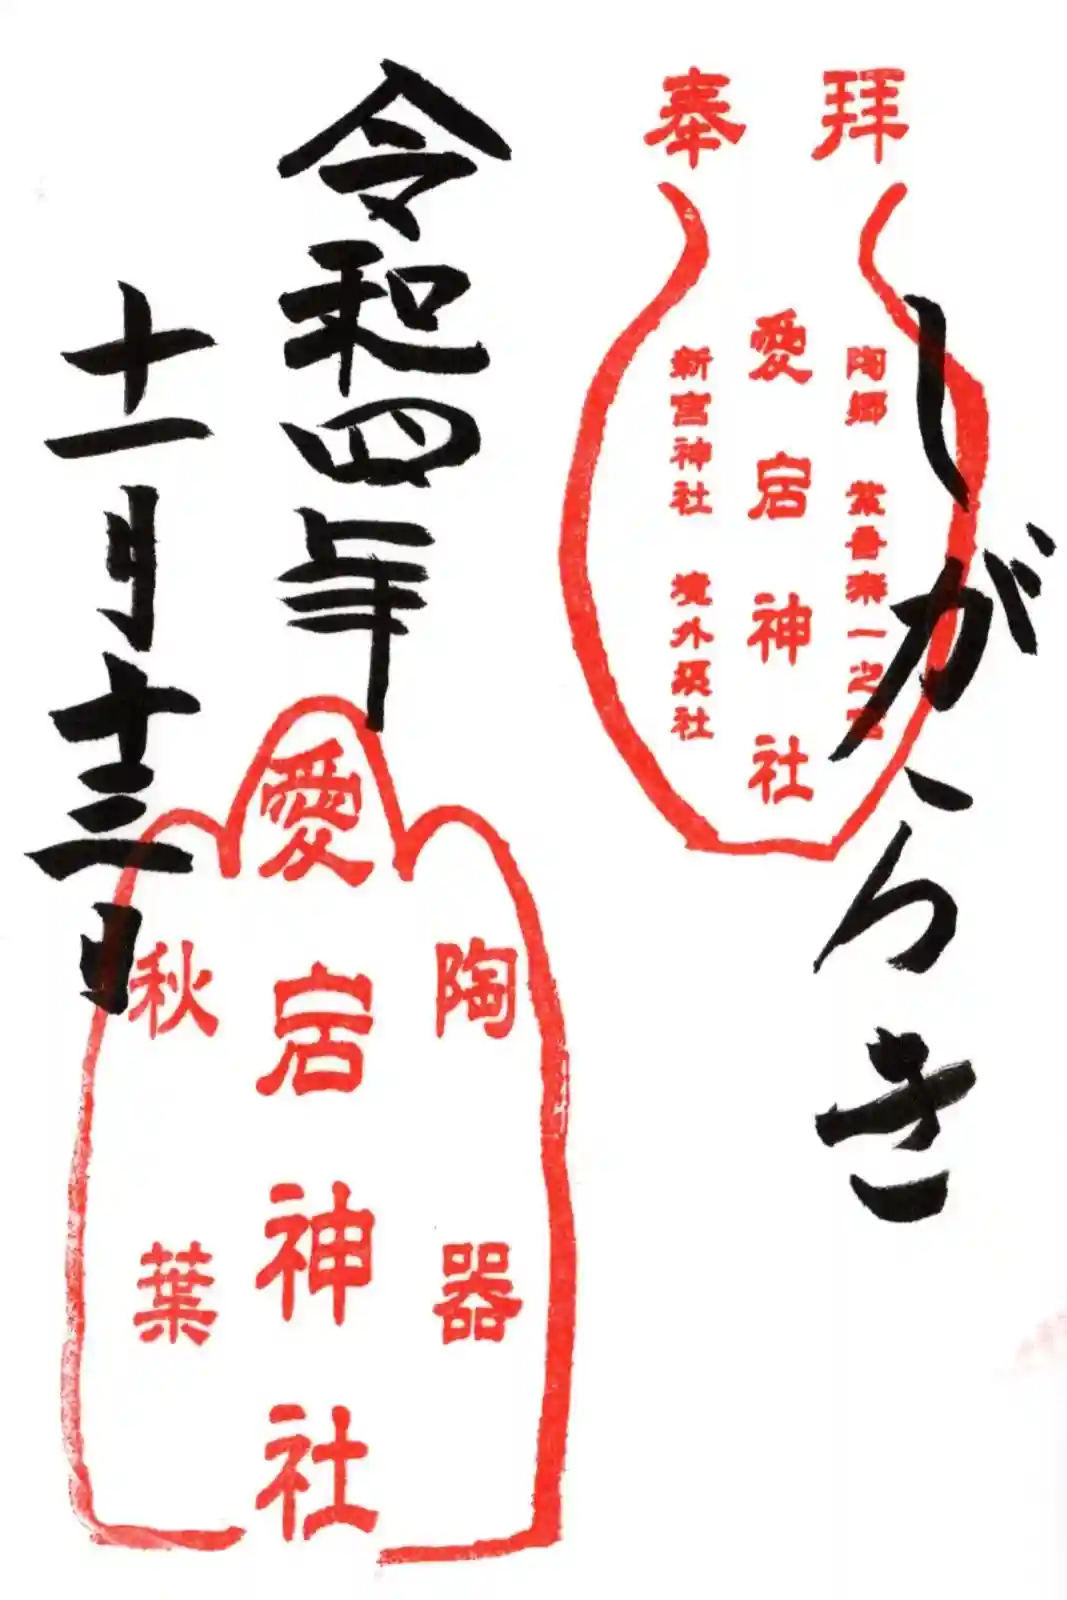 奉拝
しがらき
陶郷 紫香楽一之宮
愛宕神社
新宮神社 境外摂社
令和四年
十一月十三日
陶器
愛宕神社
秋葉